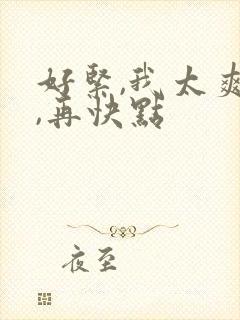 好緊,我太爽
,再快點
夜至